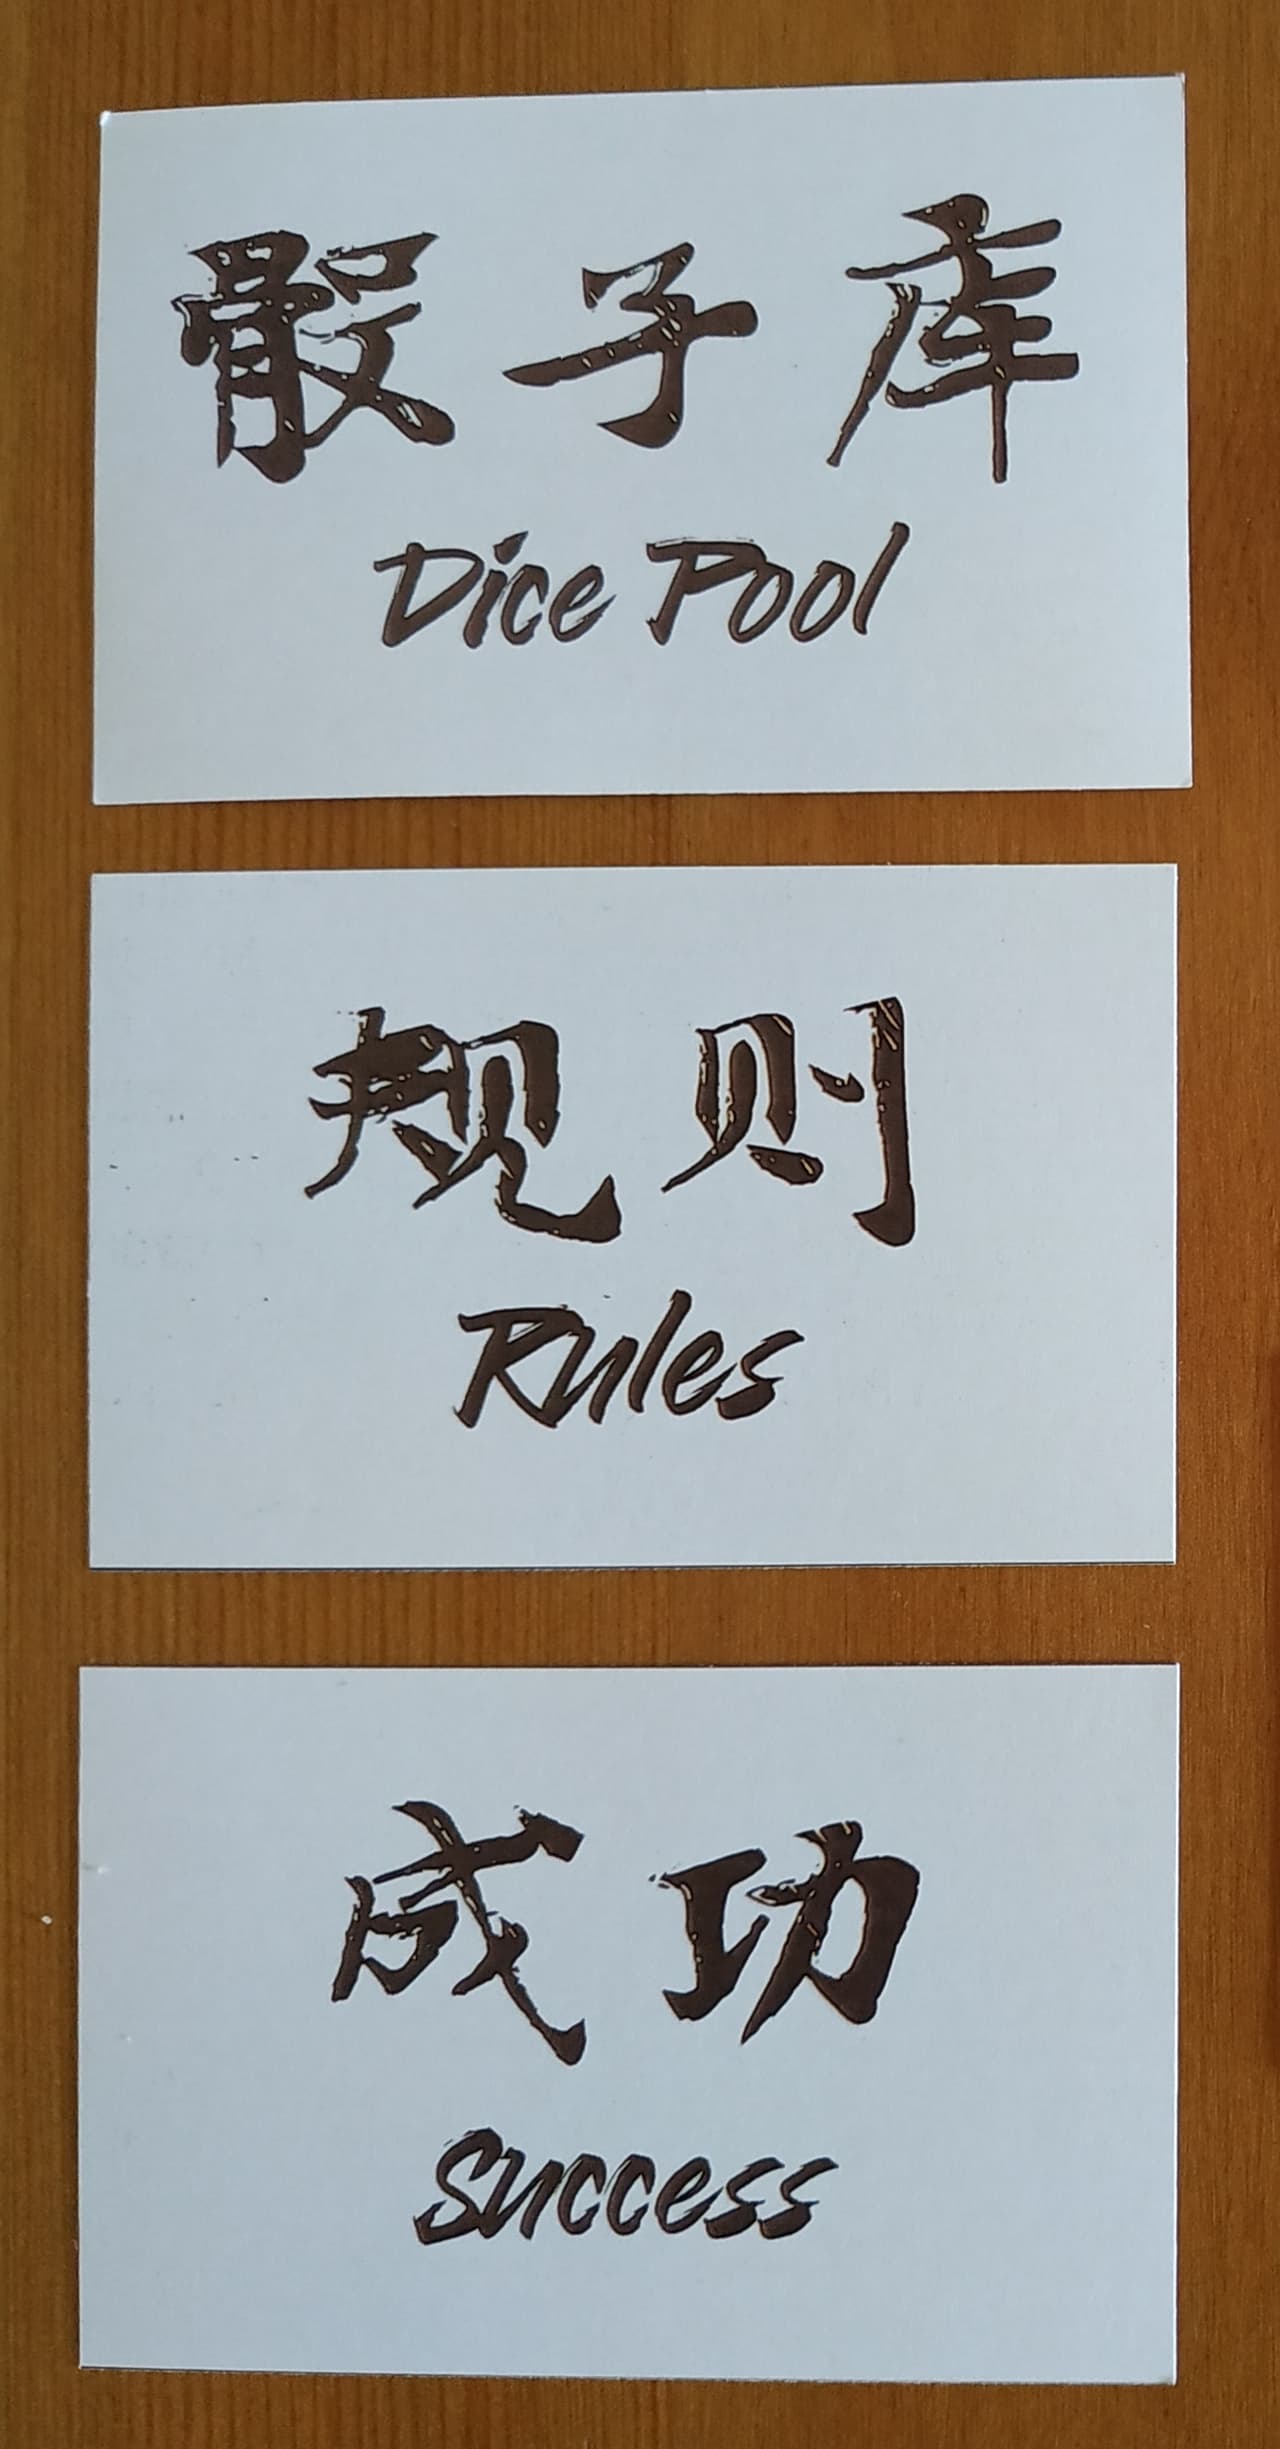 骰子库
Dice Pool
规则
Rules
成功
Success